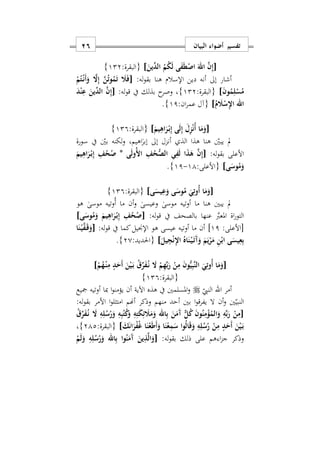 تفسير أضواء البيان
٢٦
[إِنَّ اللّهَ اصْطَفَى لَكُمُ الدِّينَ] {البقرة:١٣٢}
أشار إلى أنه دين الإسلام هنا بقوله: [فَلَا تَمُوتُنَّ إِلَّا وَأَنْتُمْ
مُسْلِمُونَ] {البقرة:١٣٢}، وصرح بذلك في قوله: [إِنَّ الدِّينَ عِنْدَ
اللّهِ الإِسْلَامُ] {آل عمران:١٩}.
[وَمَا أُنْزِلَ إِلَى إِبْرَاهِيمَ] {البقرة:١٣٦}
لم يبيّن هنا هذا الذي أنزل إلى إبراهيم، ولكنه بيّن في سورة
الأعلى بقوله: [إِنَّ هَذَا لَفِي الصُّحُفِ الأُولَى * صُحُفِ إِبْرَاهِيمَ
وَمُوسَى] {الأعلى:١٨-١٩}.
[وَمَا أُوتِيَ مُوسَى وَعِيسَى] {البقرة:١٣٦}
لم يبين هنا ما أوتيه موسى وعيسى وأن ما أوتيه موسى هو
التوراة المعبّر عنها بالصحف في قوله: [صُحُفِ إِبْرَاهِيمَ وَمُوسَى]
{الأعلى: ١٩} أن ما أوتيه عيسى هو الإنجيل كما في قوله: [وَقَفَّيْنَا
بِعِيسَى ابْنِ مَرْيَمَ وَآَتَيْنَاهُ الإِنْجِيلَ] {الحديد:٢٧}.
[وَمَا أُوتِيَ النَّبِيُّونَ مِنْ رَبِّهِمْ لَا نُفَرِّقُ بَيْنَ أَحَدٍ مِنْهُمْ]
{البقرة:١٣٦}
أمر الله النبيّ ﷺ والمسلمين في هذه الآية أن يؤمنوا بما أوتيه جميع
النبيّين وأن لا يفرقوا بين أحد منهم وذكر أنهم امتثلوا الأمر بقوله:
[مِنْ رَبِّهِ وَالمُؤْمِنُونَ كُلٌّ آَمَنَ بِاللّهِ وَمَلَائِكَتِهِ وَكُتُبِهِ وَرُسُلِهِ لَا نُفَرِّقُ
بَيْنَ أَحَدٍ مِنْ رُسُلِهِ وَقَالُوا سَمِعْنَا وَأَطَعْنَا غُفْرَانَكَ] {البقرة:٢٨٥}،
وذكر جزاءهم على ذلك بقوله: [وَالَّذِينَ آَمَنُوا بِاللّهِ وَرُسُلِهِ وَلَمْ